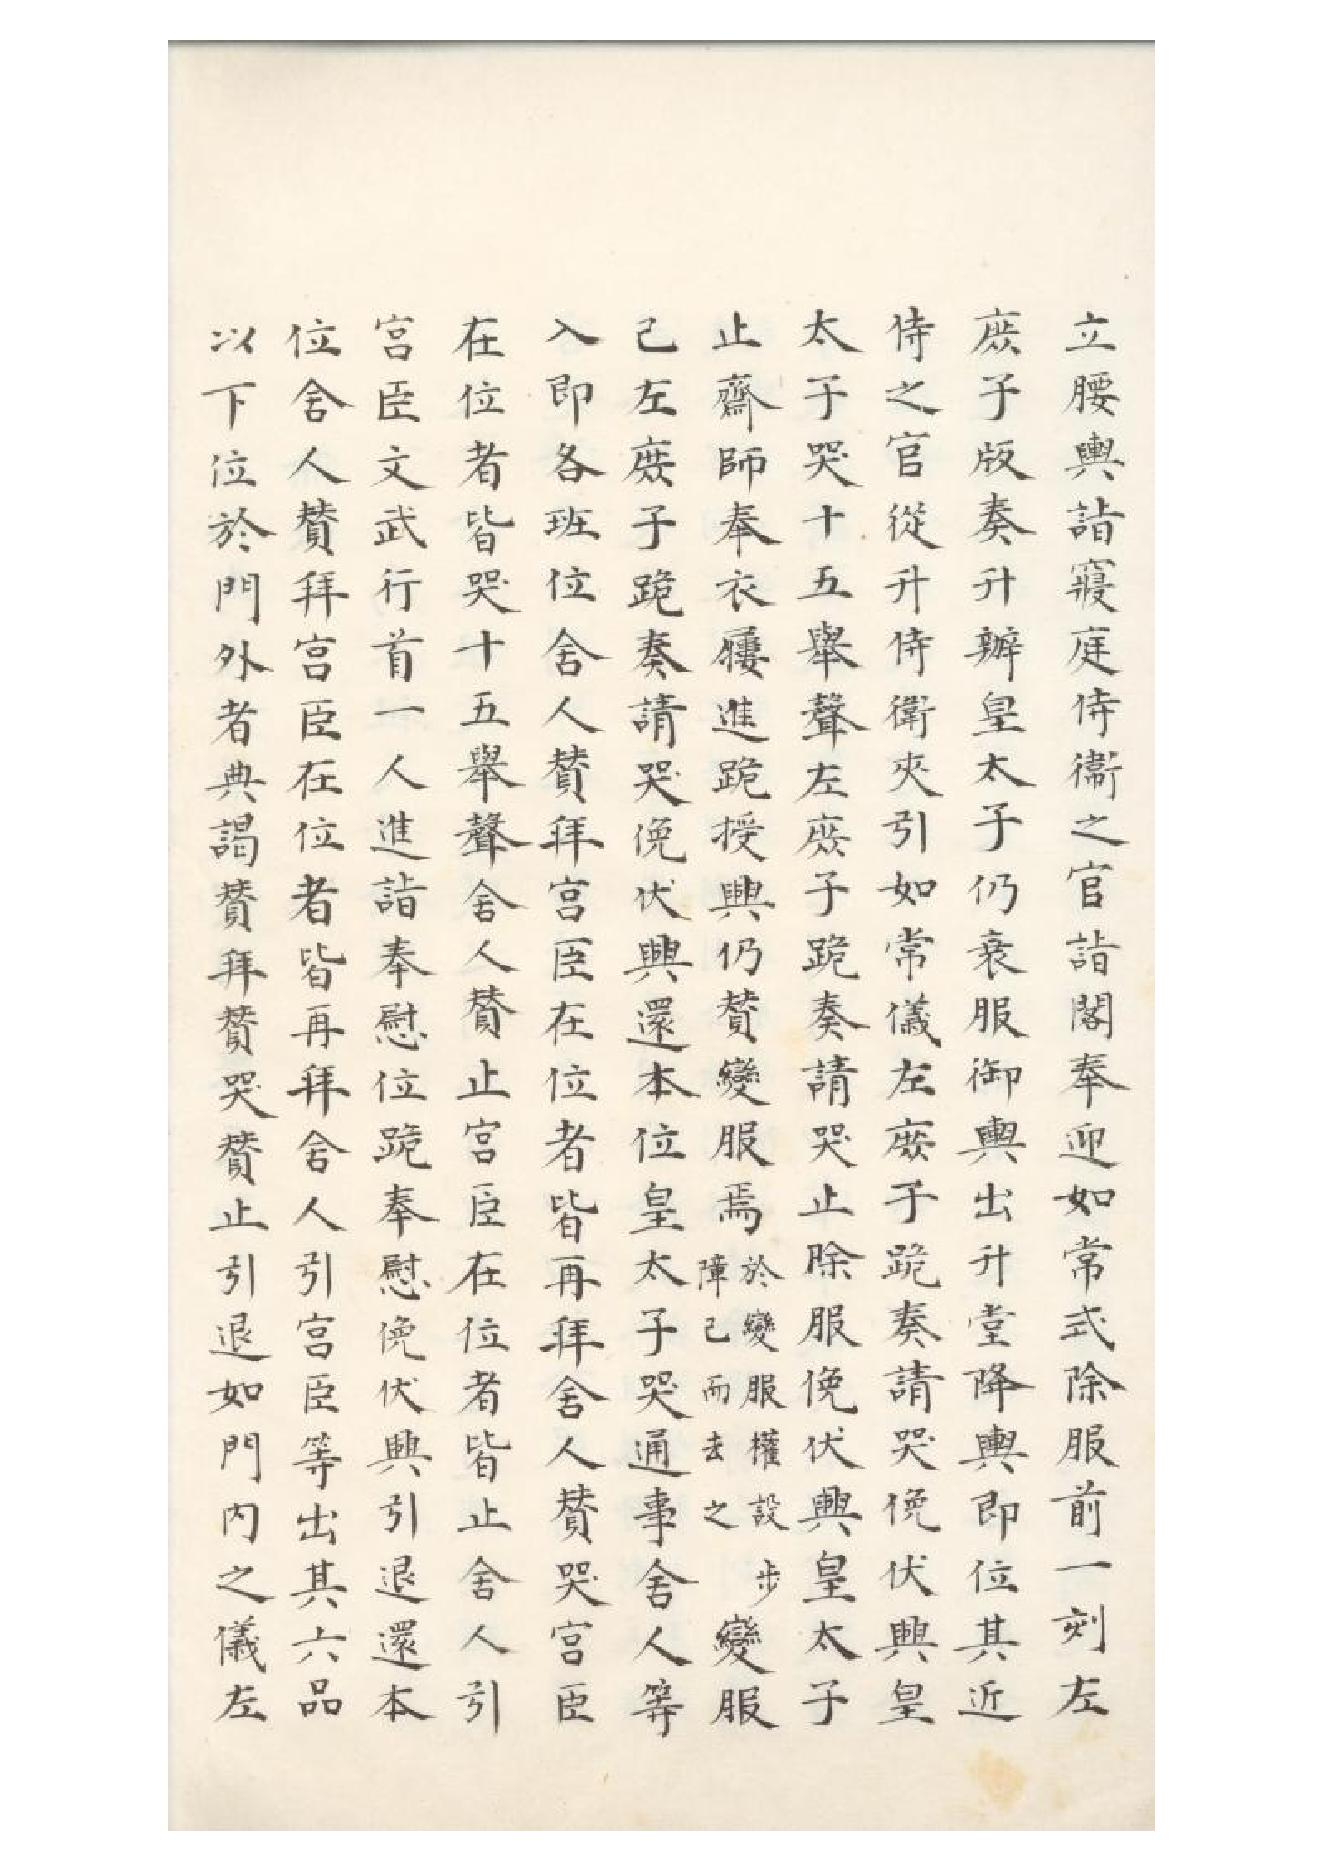 立腰輿詣寢庭侍衞之官詣閤奉迎如常式除服前一刻左
庶子版奏升辦皇太子仍衰服御輿出升堂降輿即位其近
侍之官從升侍衛夾引如常儀左庶子跪奏請哭俛伏興皇
太子哭十五舉聲左庶子跪奏請哭止除服俛伏興皇太子
止齋師奉衣屨進跪授興仍贊變服焉於變服權設步障已而去之變服
已左庶子跪奏請哭俛伏興還本位皇太子哭通事舍人等
入即各班位舍人贊拜宮臣在位者皆再拜舍人贊哭宮臣
在位者皆哭十五舉聲舍人贊止宮臣在位者皆止舍人引
宮臣文武行首一人進詣奉慰位跪奉慰俛伏興引退還本
位舍人贊拜宮臣在位者皆再拜舍人引宮臣等出其六品
以下位於門外者典謁贊拜贊哭贊止引退如門内之儀左